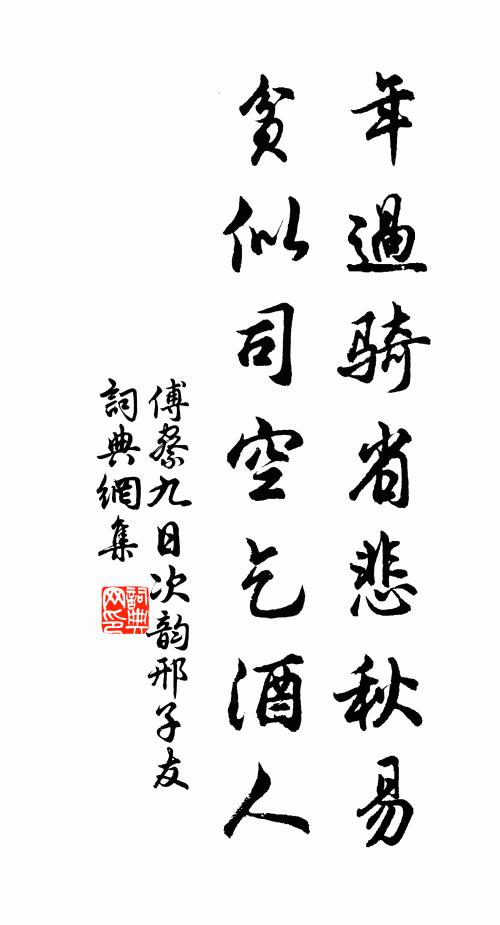 年過騎省悲秋易
貧似司空乞酒人
傅察九日次韵邢子友
詞典網集
詞典
网印